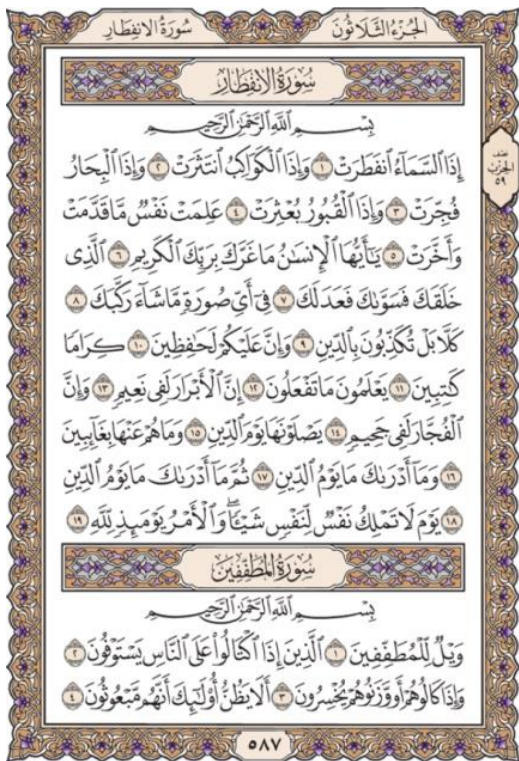 الجُزءُ الثَّلَاثُونَ
سُورَةُ الانفِطَار
سُورَةُ الِانفِطَارِ
بِسْمِ اللَّهِ الرَّحْمَٰنِ الرَّحِيمِ
إِذَا السَّمَاءُ انفَطَرَتْ ١ وَإِذَا الْكَوَاكِبُ انتَثَرَتْ ٢ وَإِذَا الْبِحَارُ
نصف
الحزب
٥٩
فُجِّرَتْ ٣ وَإِذَا الْقُبُورُ بُعْثِرَتْ ٤ عَلِمَتْ نَفْسٌ مَّا قَدَّمَتْ
وَأَخَّرَتْ ٥ يَٰأَيُّهَا الْإِنسَٰنُ مَا غَرَّكَ بِرَبِّكَ الْكَرِيمِ ٦ الَّذِى
خَلَقَكَ فَسَوَّىٰكَ فَعَدَلَكَ ٧ فِىٓ أَىِّ صُورَةٍ مَّا شَآءَ رَكَّبَكَ ٨
كَلَّا بَلْ تُكَذِّبُونَ بِالدِّينِ ٩ وَإِنَّ عَلَيْكُمْ لَحَٰفِظِينَ ١٠ كِرَامًا
كَٰتِبِينَ ١١ يَعْلَمُونَ مَا تَفْعَلُونَ ١٢ إِنَّ الْأَبْرَارَ لَفِى نَعِيمٍ ١٣ وَإِنَّ
الْفُجَّارَ لَفِى جَحِيمٍ ١٤ يَصْلَوْنَهَا يَوْمَ الدِّينِ ١٥ وَمَا هُمْ عَنْهَا بِغَآئِبِينَ
١٦ وَمَآ أَدْرَىٰكَ مَا يَوْمُ الدِّينِ ١٧ ثُمَّ مَآ أَدْرَىٰكَ مَا يَوْمُ الدِّينِ
١٨ يَوْمَ لَا تَمْلِكُ نَفْسٌ لِّنَفْسٍ شَيْـًٔا ۖ وَالْأَمْرُ يَوْمَئِذٍ لِّلَّهِ ١٩
سُورَةُ المُطَفِّفِينَ
بِسْمِ اللَّهِ الرَّحْمَٰنِ الرَّحِيمِ
وَيْلٌ لِّلْمُطَفِّفِينَ ١ الَّذِينَ إِذَا اكْتَالُوا عَلَى النَّاسِ يَسْتَوْفُونَ ٢
وَإِذَا كَالُوهُمْ أَو وَّزَنُوهُمْ يُخْسِرُونَ ٣ أَلَا يَظُنُّ أُو۟لَٰٓئِكَ أَنَّهُم مَّبْعُوثُونَ ٤
٥٨٧